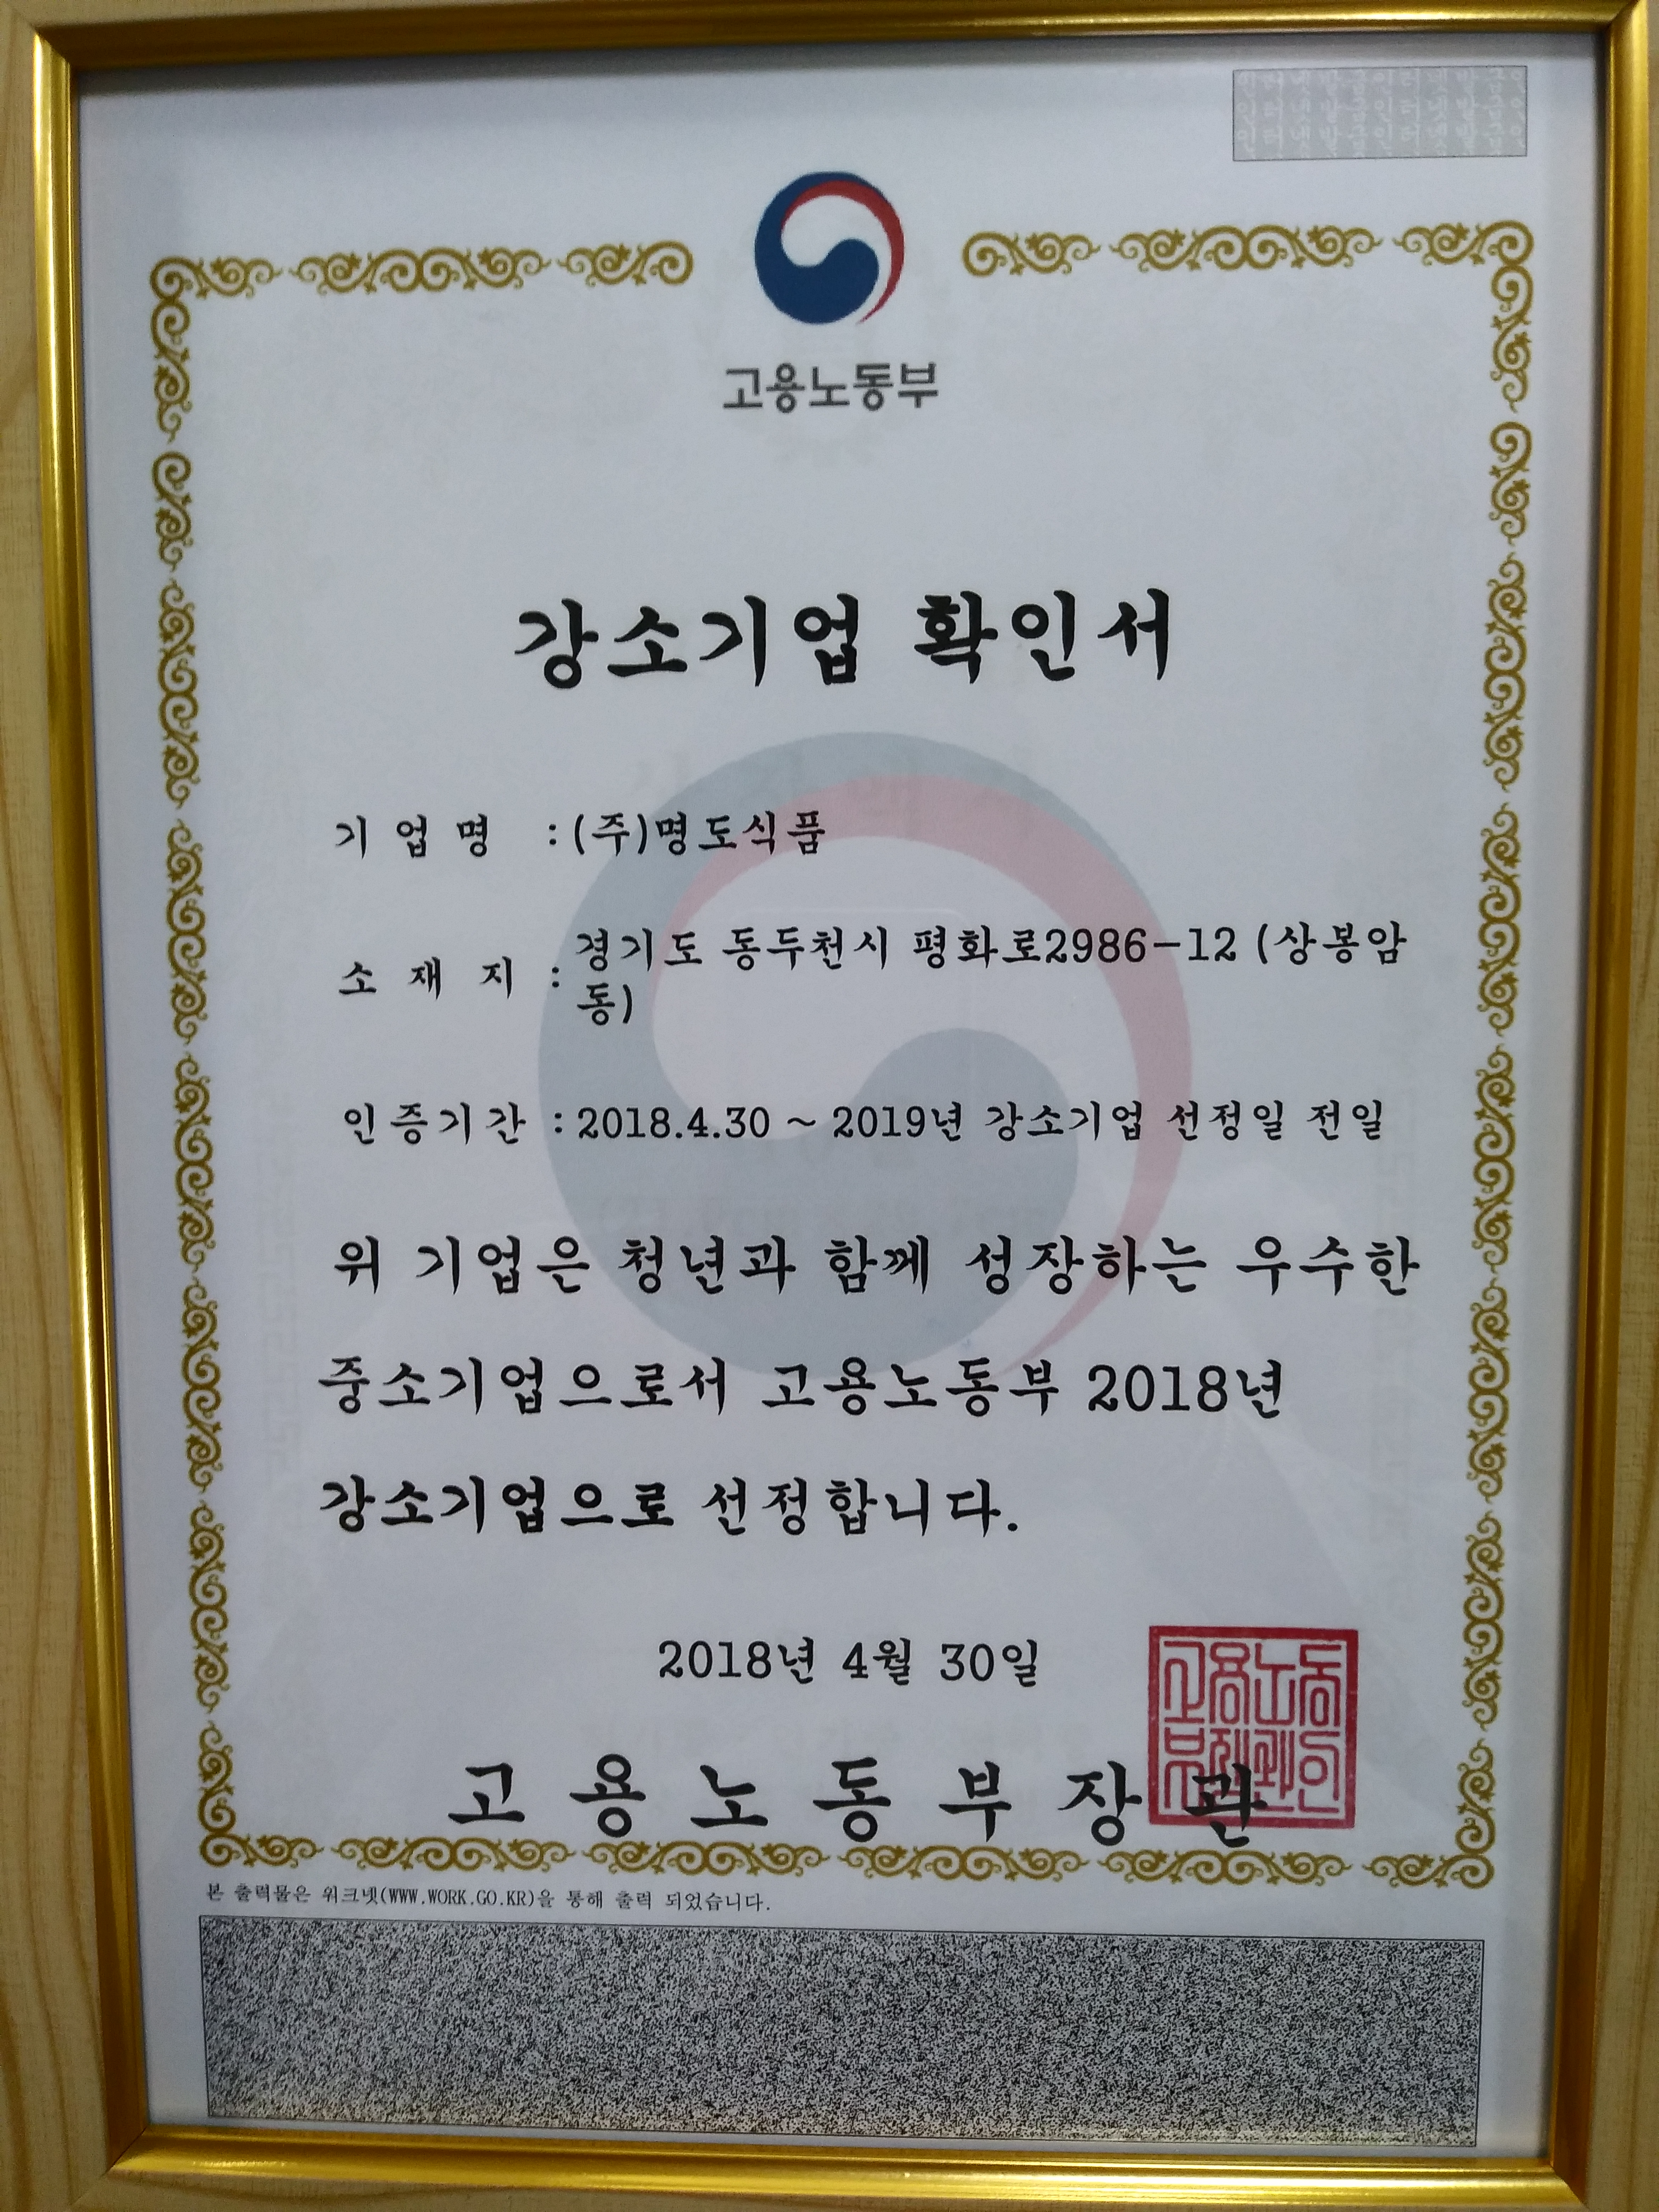 인터넷발급인터넷발급인
인터넷발급인터넷발급인
인터넷발급인터넷발급인
고용노동부
강소기업 확인서
기 업 명 : (주)명도식품
소 재 지 : 경기도 동두천시 평화로2986-12 (상봉암
동)
인증기간 : 2018.4.30 ~ 2019년 강소기업 선정일 전일
위 기업은 청년과 함께 성장하는 우수한
중소기업으로서 고용노동부 2018년
강소기업으로 선정합니다.
2018년 4월 30일
고용노동
부장관인
고 용 노 동 부 장 관
본 출력물은 워크넷(WWW.WORK.GO.KR)을 통해 출력 되었습니다.